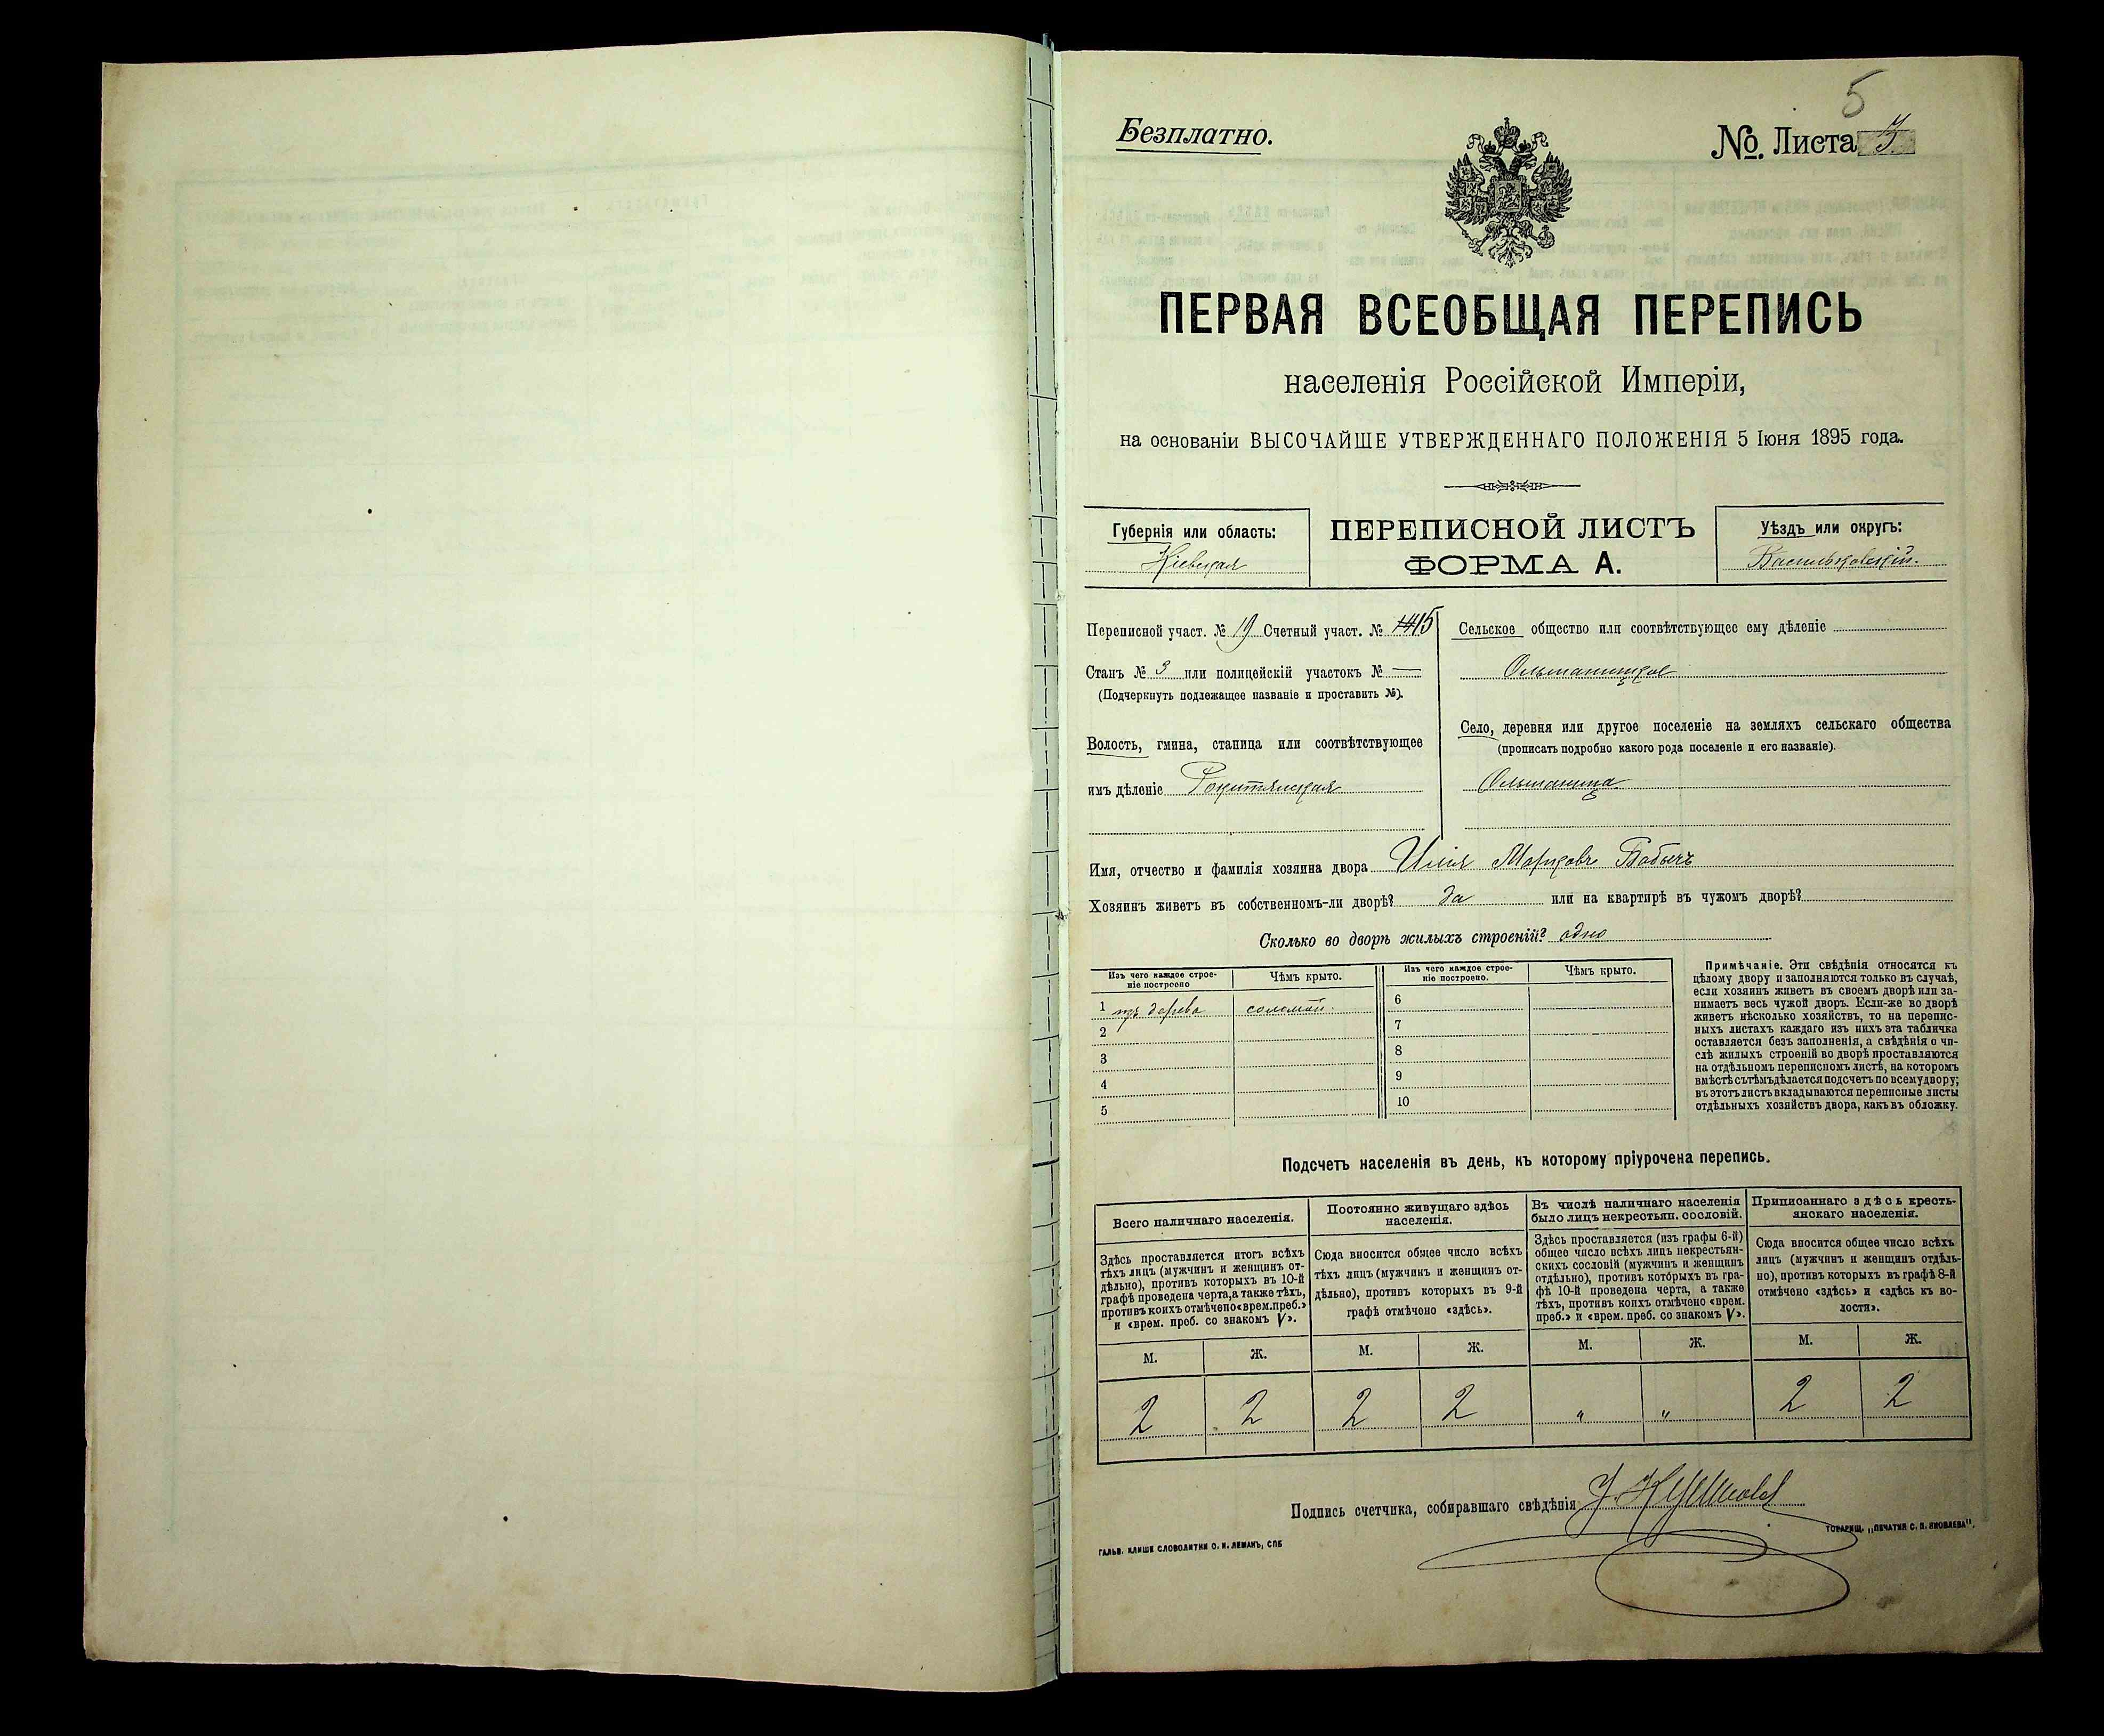 5
Безплатно.
№. Листа 3
ПЕРВАЯ ВСЕОБЩАЯ ПЕРЕПИСЬ
населенія Россійской Имперіи,
на основаніи ВЫСОЧАЙШЕ УТВЕРЖДЕННАГО ПОЛОЖЕНІЯ 5 Іюня 1895 года.
Губернія или область:
Кіевская
ПЕРЕПИСНОЙ ЛИСТЪ
ФОРМА А.
Уѣздъ или округъ:
Васильковскій.
Переписной участ. № 19 Счетный участ. № 15
Станъ № 3 или полицейскій участокъ № —
(Подчеркнуть подлежащее названіе и проставить №).
Волость, гмина, станица или соотвѣтствующее
имъ дѣленіе Рокитянская
Сельское общество или соотвѣтствующее ему дѣленіе
Ольшаницкое
Село, деревня или другое поселеніе на земляхъ сельскаго общества
(прописать подробно какого рода поселеніе и его названіе).
Ольшаница
Имя, отчество и фамилія хозяина двора Илія Марковъ Бабычъ
Хозяинъ живетъ въ собственномъ-ли дворѣ? да или на квартирѣ въ чужомъ дворѣ?
Сколько во дворѣ жилыхъ строеній? одно
Изъ чего каждое строе-
ніе построено
Чѣмъ крыто.
Изъ чего каждое строе-
ніе построено.
Чѣмъ крыто.
1 изъ дерева соломой. 6
2 7
3 8
4 9
5 10
Примѣчаніе. Эти свѣдѣнія относятся къ
цѣлому двору и заполняются только въ случаѣ,
если хозяинъ живетъ въ своемъ дворѣ или за-
нимаетъ весь чужой дворъ. Если-же во дворѣ
живетъ нѣсколько хозяйствъ, то на перепис-
ныхъ листахъ каждаго изъ нихъ эта табличка
оставляется безъ заполненія, а свѣдѣнія о чи-
слѣ жилыхъ строеній во дворѣ проставляются
на отдѣльномъ переписномъ листѣ, на которомъ
вмѣстѣ съ тѣмъ дѣлается подсчетъ по всему двору;
въ этотъ листъ вкладываются переписные листы
отдѣльныхъ хозяйствъ двора, какъ въ обложку.
Подсчетъ населенія въ день, къ которому пріурочена перепись.
Всего наличнаго населенія.
Здѣсь проставляется итогъ всѣхъ
тѣхъ лицъ (мужчинъ и женщинъ от-
дѣльно), противъ которыхъ въ 10-й
графѣ проведена черта, а также тѣхъ,
противъ коихъ отмѣчено «врем. преб.»
и «врем. преб. со знакомъ V».
Постоянно живущаго здѣсь
населенія.
Сюда вносится общее число всѣхъ
тѣхъ лицъ (мужчинъ и женщинъ от-
дѣльно), противъ которыхъ въ 9-й
графѣ отмѣчено «здѣсь».
Въ числѣ наличнаго населенія
было лицъ некрестьян. сословій.
Здѣсь проставляется (изъ графы 6-й)
общее число всѣхъ лицъ некрестьян-
скихъ сословій (мужчинъ и женщинъ
отдѣльно), противъ которыхъ въ гра-
фѣ 10-й проведена черта, а также
тѣхъ, противъ коихъ отмѣчено «врем.
преб.» и «врем. преб. со знакомъ V».
Приписаннаго здѣсь кресть-
янскаго населенія.
Сюда вносится общее число всѣхъ
лицъ (мужчинъ и женщинъ отдѣль-
но), противъ которыхъ въ графѣ 8-й
отмѣчено «здѣсь» и «здѣсь къ во-
лости».
М. Ж. М. Ж. М. Ж. М. Ж.
2 2 2 2 " " 2 2
Подпись счетчика, собиравшаго свѣдѣнія
ГАЛЬВ. КЛИШЕ СЛОВОЛИТНИ О. И. ЛЕМАНЪ, СПБ
ТОВАРИЩ. „ПЕЧАТНЯ С. П. ЯКОВЛЕВА".